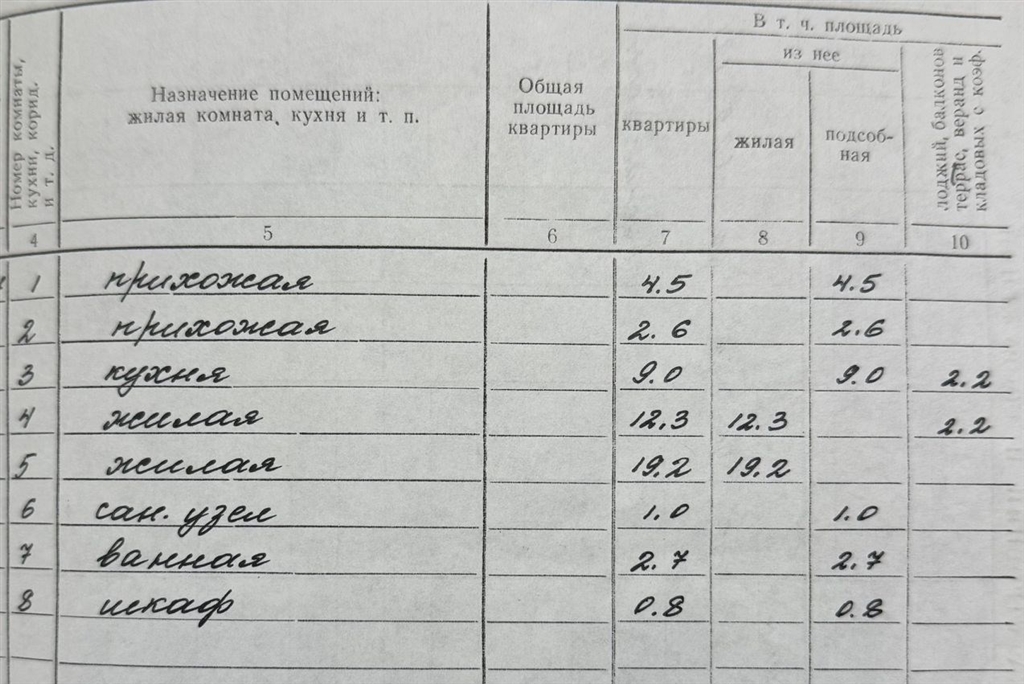 Номер комнаты, кухни, корид. и т. д.
Назначение помещений:
жилая комната, кухня и т. п.
Общая площадь квартиры
В т. ч. площадь
квартиры
из нее
жилая
подсоб-
ная
лоджий, балконов
террас, веранд и
кладовых с коэф.
4 5 6 7 8 9 10
1 прихожая 4.5 4.5
2 прихожая 2.6 2.6
3 кухня 9.0 9.0 2.2
4 жилая 12.3 12.3 2.2
5 жилая 19.2 19.2
6 сан. узел 1.0 1.0
7 ванная 2.7 2.7
8 шкаф 0.8 0.8